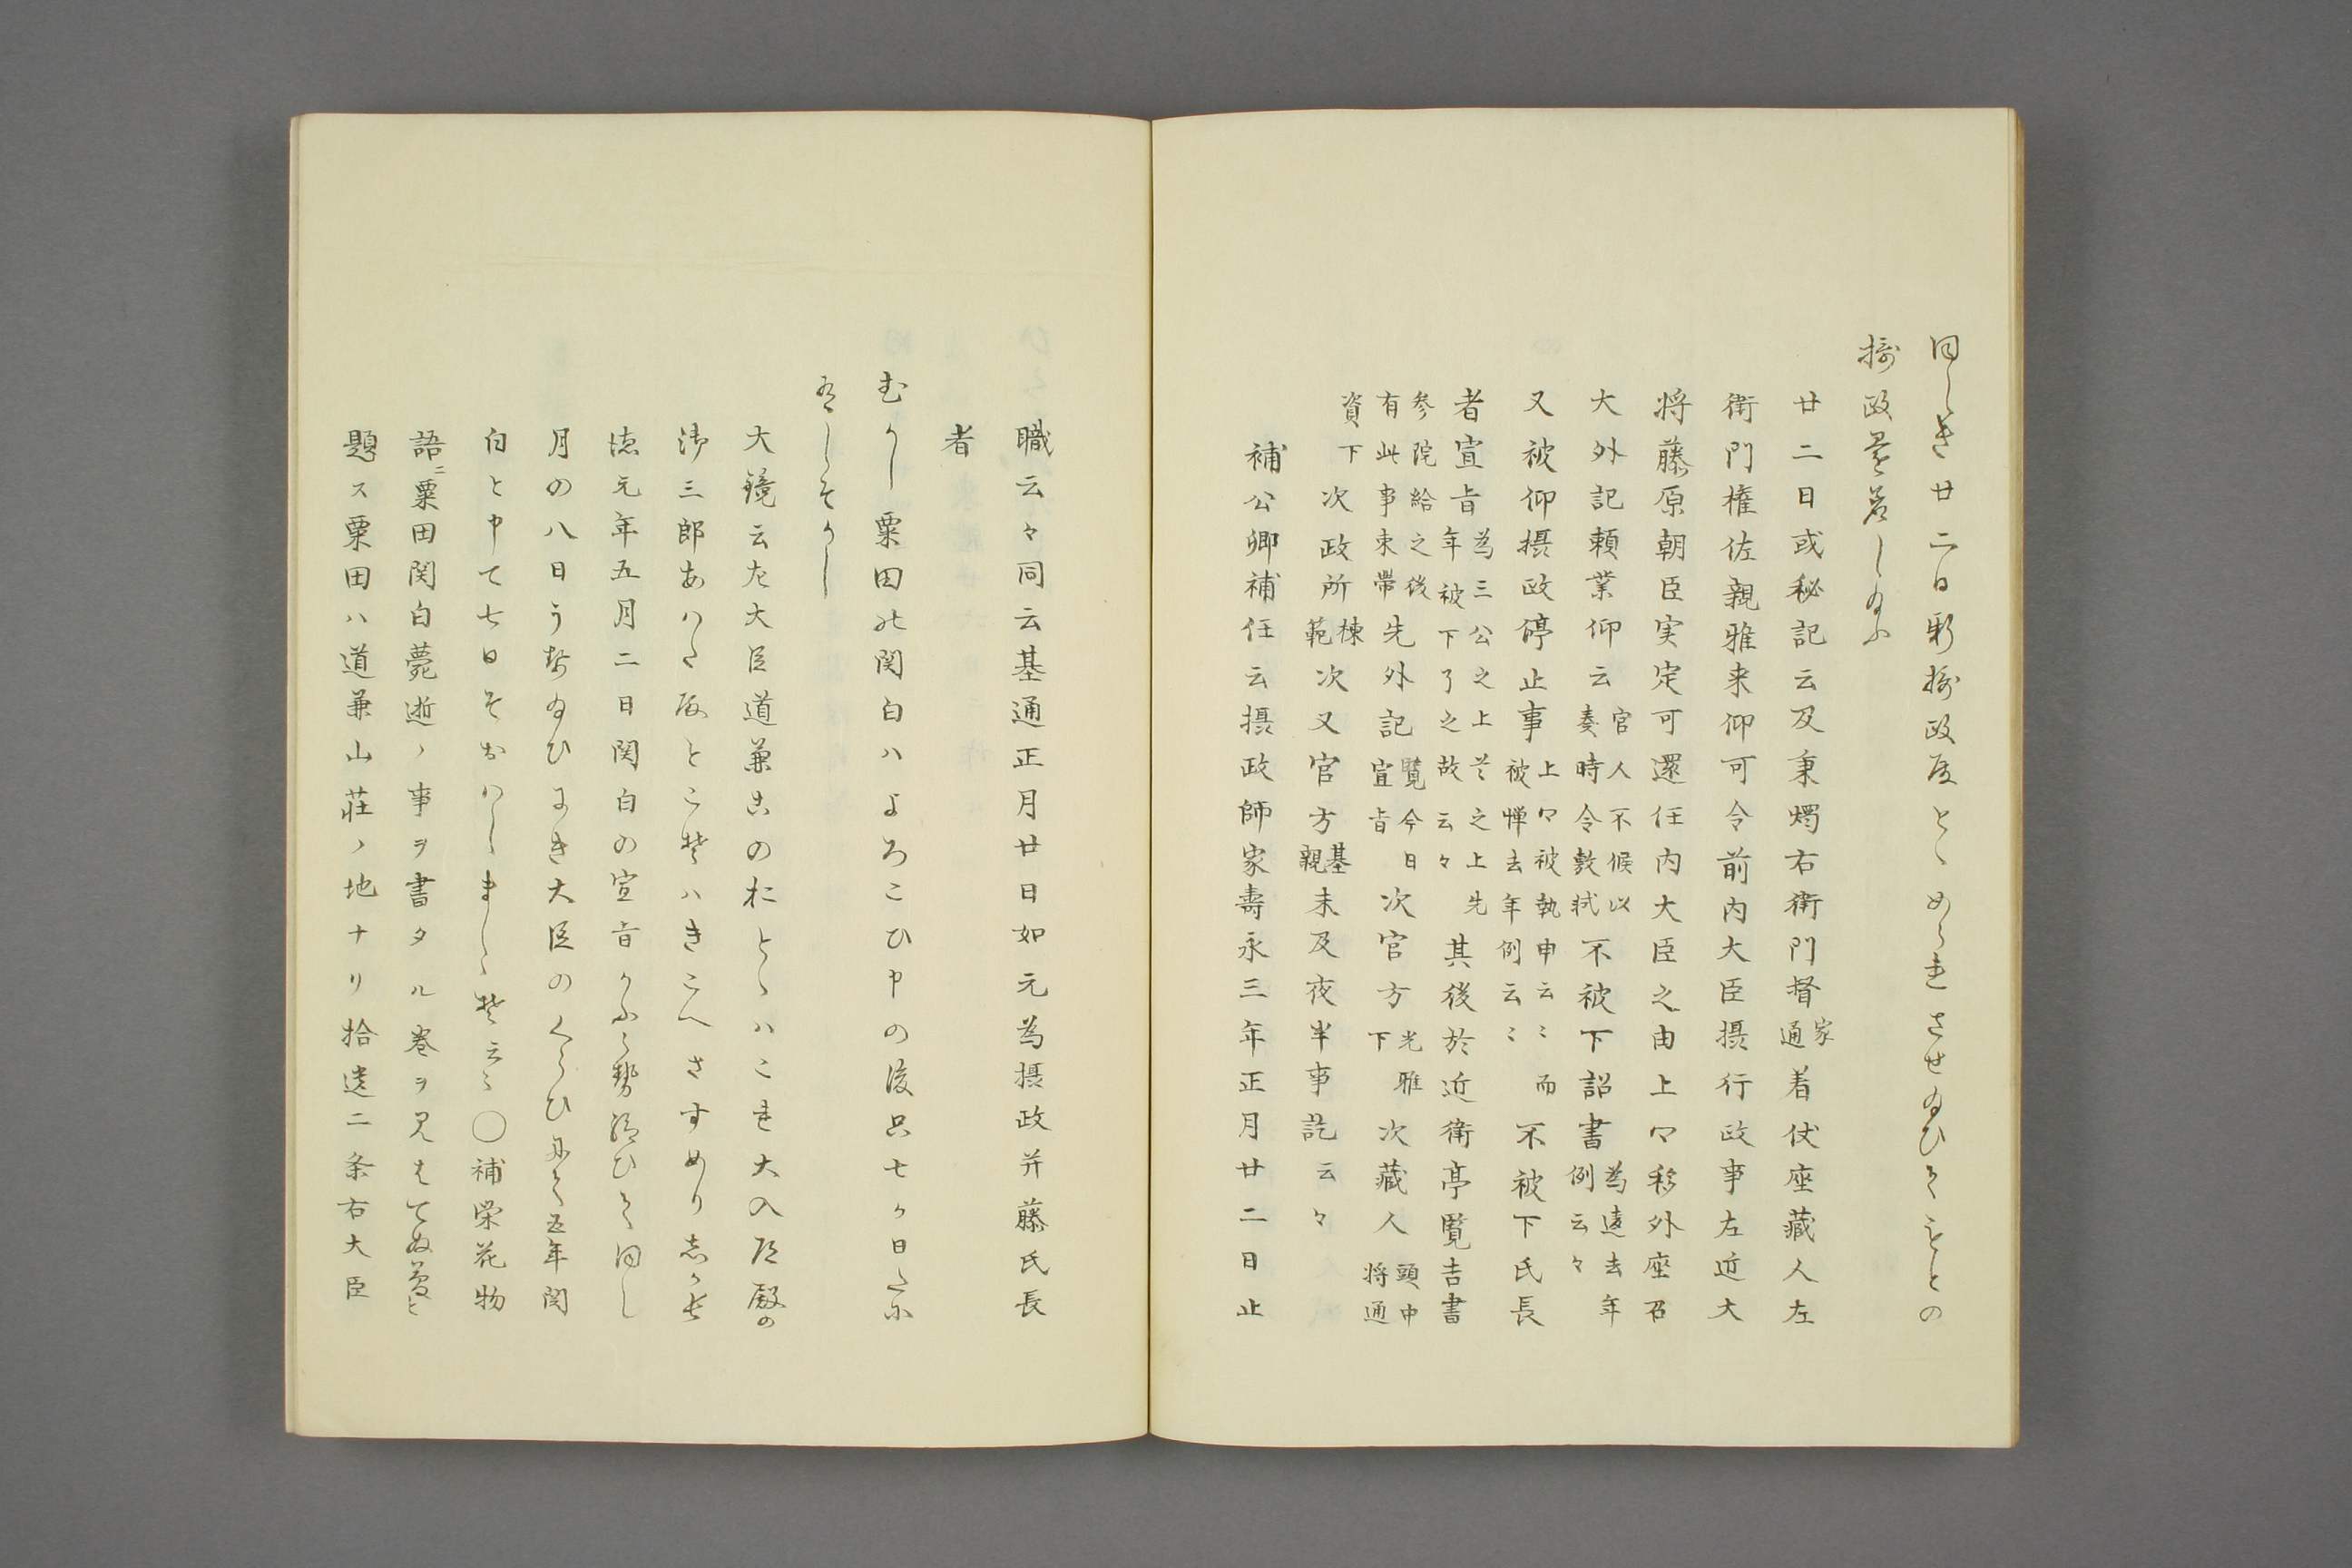 同しき廿二日新摂政殿とゝめられさせ給ひてもとの
摂政還着し給ふ
廿二日或秘記云及秉燭右衛門督家通着仗座蔵人左
衛門権佐親雅来仰可令前内大臣摂行政事左近大
将藤原朝臣実定可還任内大臣之由上卩移外座召
大外記頼業仰云官人不候以奏時令敷軾不被下詔書為遠去年例云々
又被仰摂政停止事上卩被執申云〻而被憚去年例云〻不被下氏長
者宣旨為三公之上若之上先年被下了之故云々其後於近衛亭覧吉書
参院給之後有此事束帯先外記覧今日宣旨次官方光雅下次蔵人頭中将通
資下次政所棟範次又官方基親未及夜半事訖云々
補公卿補任云摂政師家寿永三年正月廿二日止
職云々同云基通正月廿日如元為摂政并藤氏長
者
むかし粟田の関白ハよろこひ申の後只七ヶ日たに
有しそかし
大鏡云左大臣道兼このおとゝハこれ大入道殿の
御三郎あハた殿とこそハきこへさすめりしか長
徳元年五月二日関白の宣旨かふらせ給ひて同し
月の八日うせ給ひにき大臣のくらひにて五年関
白と申て七日そおハしましゝそ云〻〇補栄花物
語ニ粟田関白薨逝ノ事ヲ書タル巻ヲ見はてぬ夢と
題ス粟田ハ道兼山荘ノ地ナリ拾遺二条右大臣